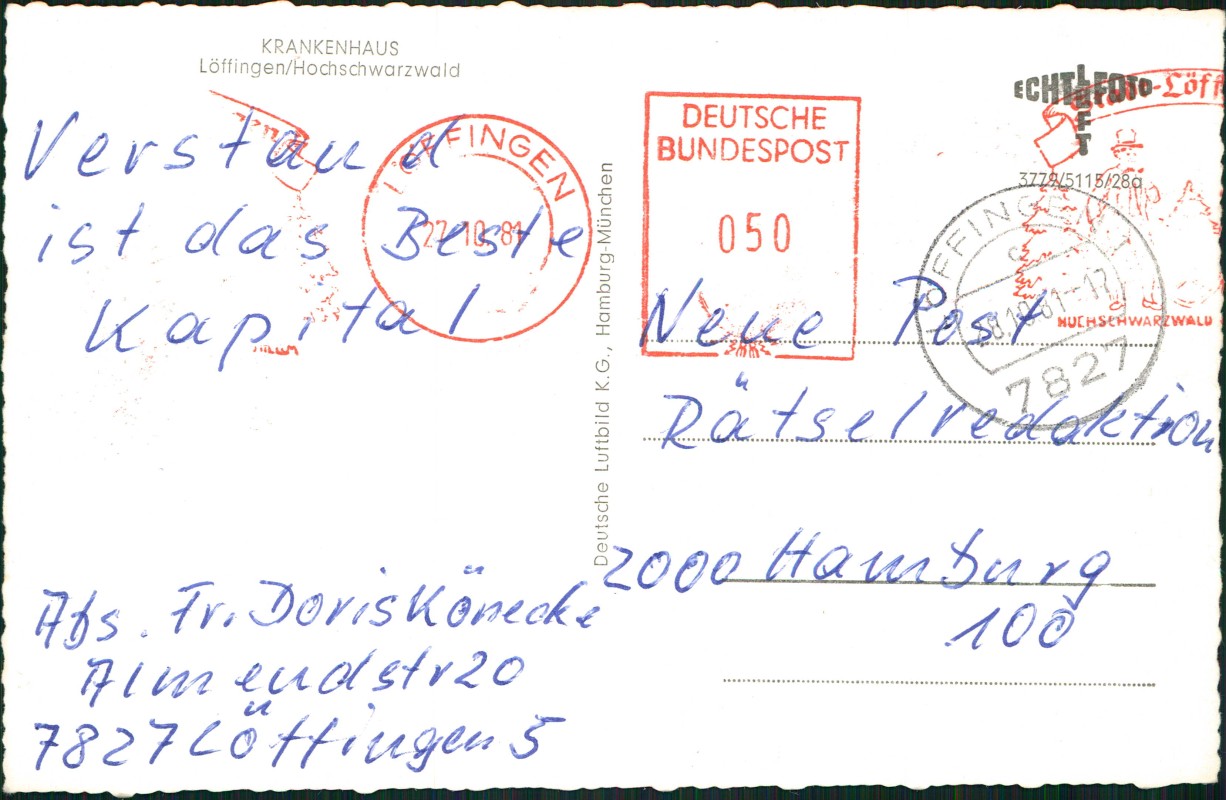 KRANKENHAUS
Löffingen/Hochschwarzwald
Verstand
ist das Beste
Kapital
Abs. Fr. Doris Könecke
Almendstr 20
7827 Löffingen 5
LÖFFINGEN
27.10.81
Deutsche Luftbild K.G., Hamburg-München
DEUTSCHE
BUNDESPOST
050
ECHT FOTO
LUFT
3779/5115/28a
LÖFFINGEN
c
28.10.81-17
7827
HOCHSCHWARZWALD
Neue Post
Rätselredaktion
2000 Hamburg
100